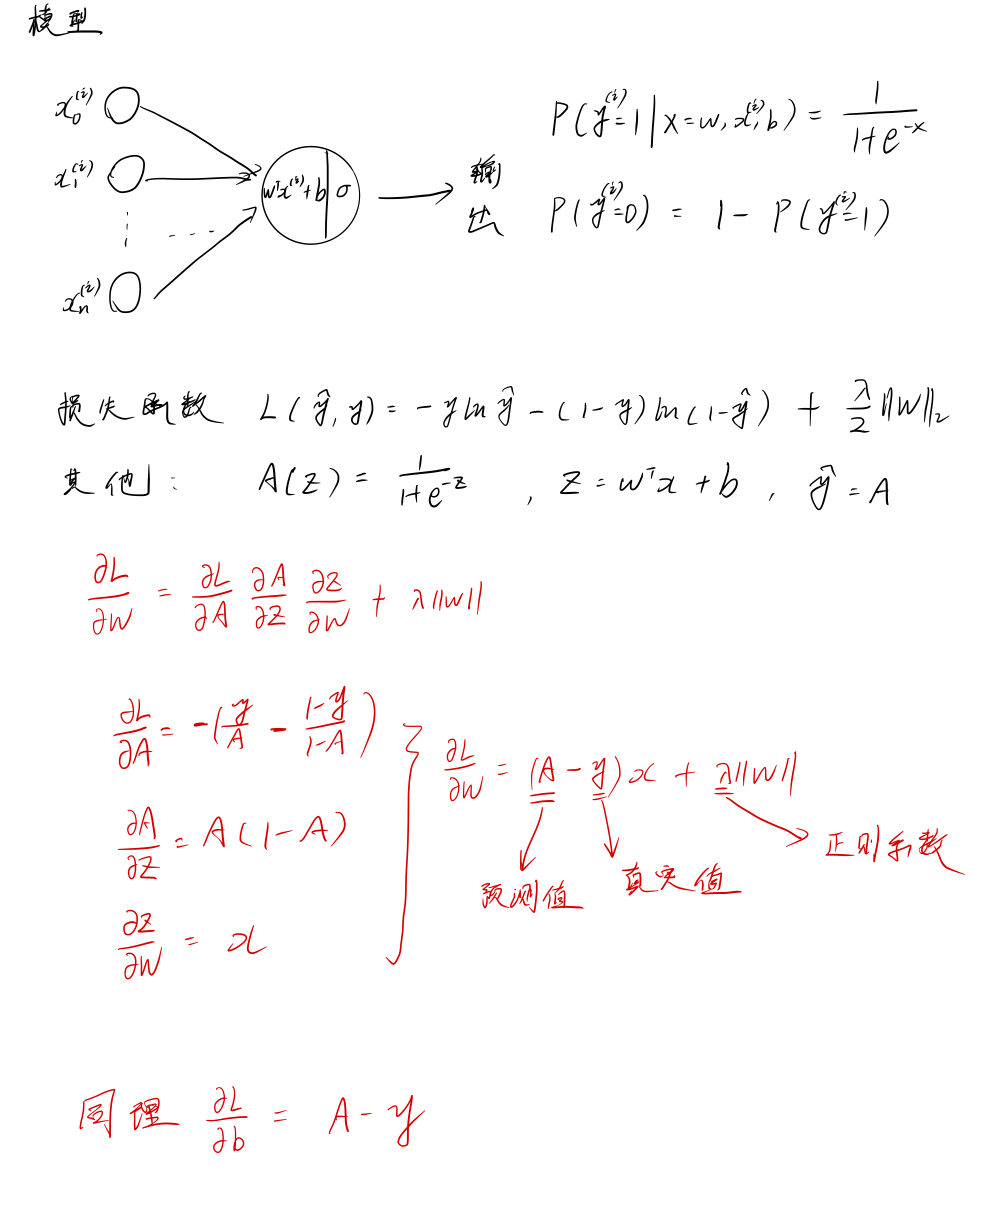 模型
x₀⁽ⁱ⁾
x₁⁽ⁱ⁾
xₙ⁽ⁱ⁾
wᵀx⁽ⁱ⁾+b | σ
输出
P(y⁽ⁱ⁾=1|x=w,x⁽ⁱ⁾,b) = 1/(1+e^(-x))
P(y⁽ⁱ⁾=0) = 1 - P(y⁽ⁱ⁾=1)
损失函数 L(ŷ,y) = -y ln ŷ - (1-y) ln(1-ŷ) + λ/2 ||W||₂
其他: A(z) = 1/(1+e^(-z)) , z = wᵀx + b , ŷ = A
∂L/∂W = ∂L/∂A ∂A/∂Z ∂Z/∂W + λ||W||
∂L/∂A = -(y/A - (1-y)/(1-A))
∂A/∂Z = A(1-A)
∂Z/∂W = x
∂L/∂W = (A-y)x + λ||W||
预测值
真实值
正则系数
同理 ∂L/∂b = A-y